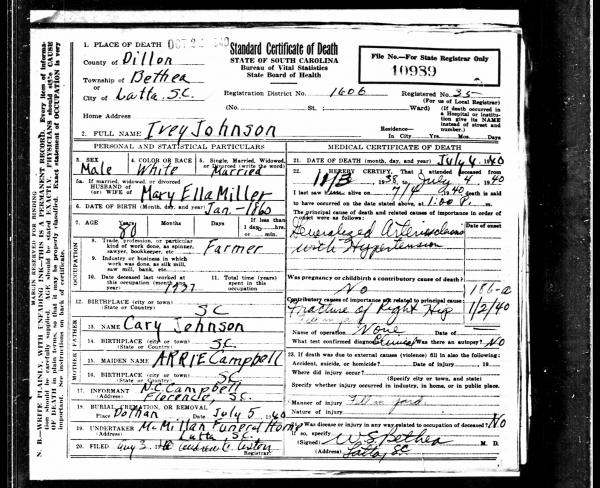 OCT 22 1940
1. PLACE OF DEATH
County of Dillon
Township of Bethea
or
City of Latta, S.C.
Home Address
Standard Certificate of Death
STATE OF SOUTH CAROLINA
Bureau of Vital Statistics
State Board of Health
File No.—For State Registrar Only
10989
Registration District No. 1606
Registered No. 35
(For use of Local Registrar)
(No. St.; Ward)
(If death occurred in a Hospital or institution give its NAME instead of street and number.)
2. FULL NAME Ivey Johnson
Residence—
In City Yrs. Mos. Days
PERSONAL AND STATISTICAL PARTICULARS
3. SEX Male
4. COLOR OR RACE White
5. Single, Married, Widowed, or Divorced (write the word) Married
5a. If married, widowed or divorced
HUSBAND of
(or) WIFE of Mary Ella Miller
6. DATE OF BIRTH (Month, day, and year) Jan - 1860
7. AGE Years 80 Months Days If less than 1 day hrs. or min.
OCCUPATION
8. Trade, profession, or particular kind of work done, as spinner, sawyer, bookkeeper, etc. Farmer
9. Industry or business in which work was done, as silk mill, saw mill, bank, etc.
10. Date deceased last worked at this occupation (month and year) 1937
11. Total time (years) spent in this occupation
12. BIRTHPLACE (city or town) SC
(State or Country)
FATHER
13. NAME Cary Johnson
14. BIRTHPLACE (city or town) SC
(State or Country)
MOTHER
15. MAIDEN NAME ARRIE Campbell
16. BIRTHPLACE (city or town) SC
(State or Country)
17. INFORMANT N.C. Campbell
(Address) Florence, S.C.
18. BURIAL, CREMATION, OR REMOVAL
Place Dothan Date July 5 1940
19. UNDERTAKER McMillan Funeral Home
(Address) Latta, S.C.
20. FILED Aug 3. 19
Registrar.
MEDICAL CERTIFICATE OF DEATH
21. DATE OF DEATH (month, day, and year) July 4, 1940
22. I HEREBY CERTIFY, That I attended deceased from
1938, to July 4, 1940
I last saw alive on 7/4, 1940, death is said
to have occurred on the date stated above, at 1:00 P. m.
The principal cause of death and related causes of importance in order of onset were as follows:
Date of onset
Generalized Arteriosclerosis
with Hypertension
Was pregnancy or childbirth a contributory cause of death?
No
186-a
Contributory causes of importance not related to principal cause:
Fracture of Right Hip 1/2/40
Fell in yard
Name of operation None Date of
What test confirmed diagnosis? Clinical Was there an autopsy? No
23. If death was due to external causes (violence) fill in also the following:
Accident, suicide, or homicide? Date of injury 19
Where did injury occur?
(Specify city or town, and state)
Specify whether injury occurred in industry, in home, or in public place.
Manner of injury Fell in yard
Nature of injury
24. Was disease or injury in any way related to occupation of deceased? No
If so, specify
(Signed) W.S. Bethea M. D.
(Address) Latta, SC
MARGIN RESERVED FOR BINDING
N. B.—WRITE PLAINLY, WITH UNFADING INK—THIS IS A PERMANENT RECORD. Every item of information should be carefully supplied. AGE should be stated EXACTLY. PHYSICIANS should state CAUSE OF DEATH in plain terms, so that it may be properly classified. Exact statement of OCCUPATION is very important. See instructions on back of certificate.